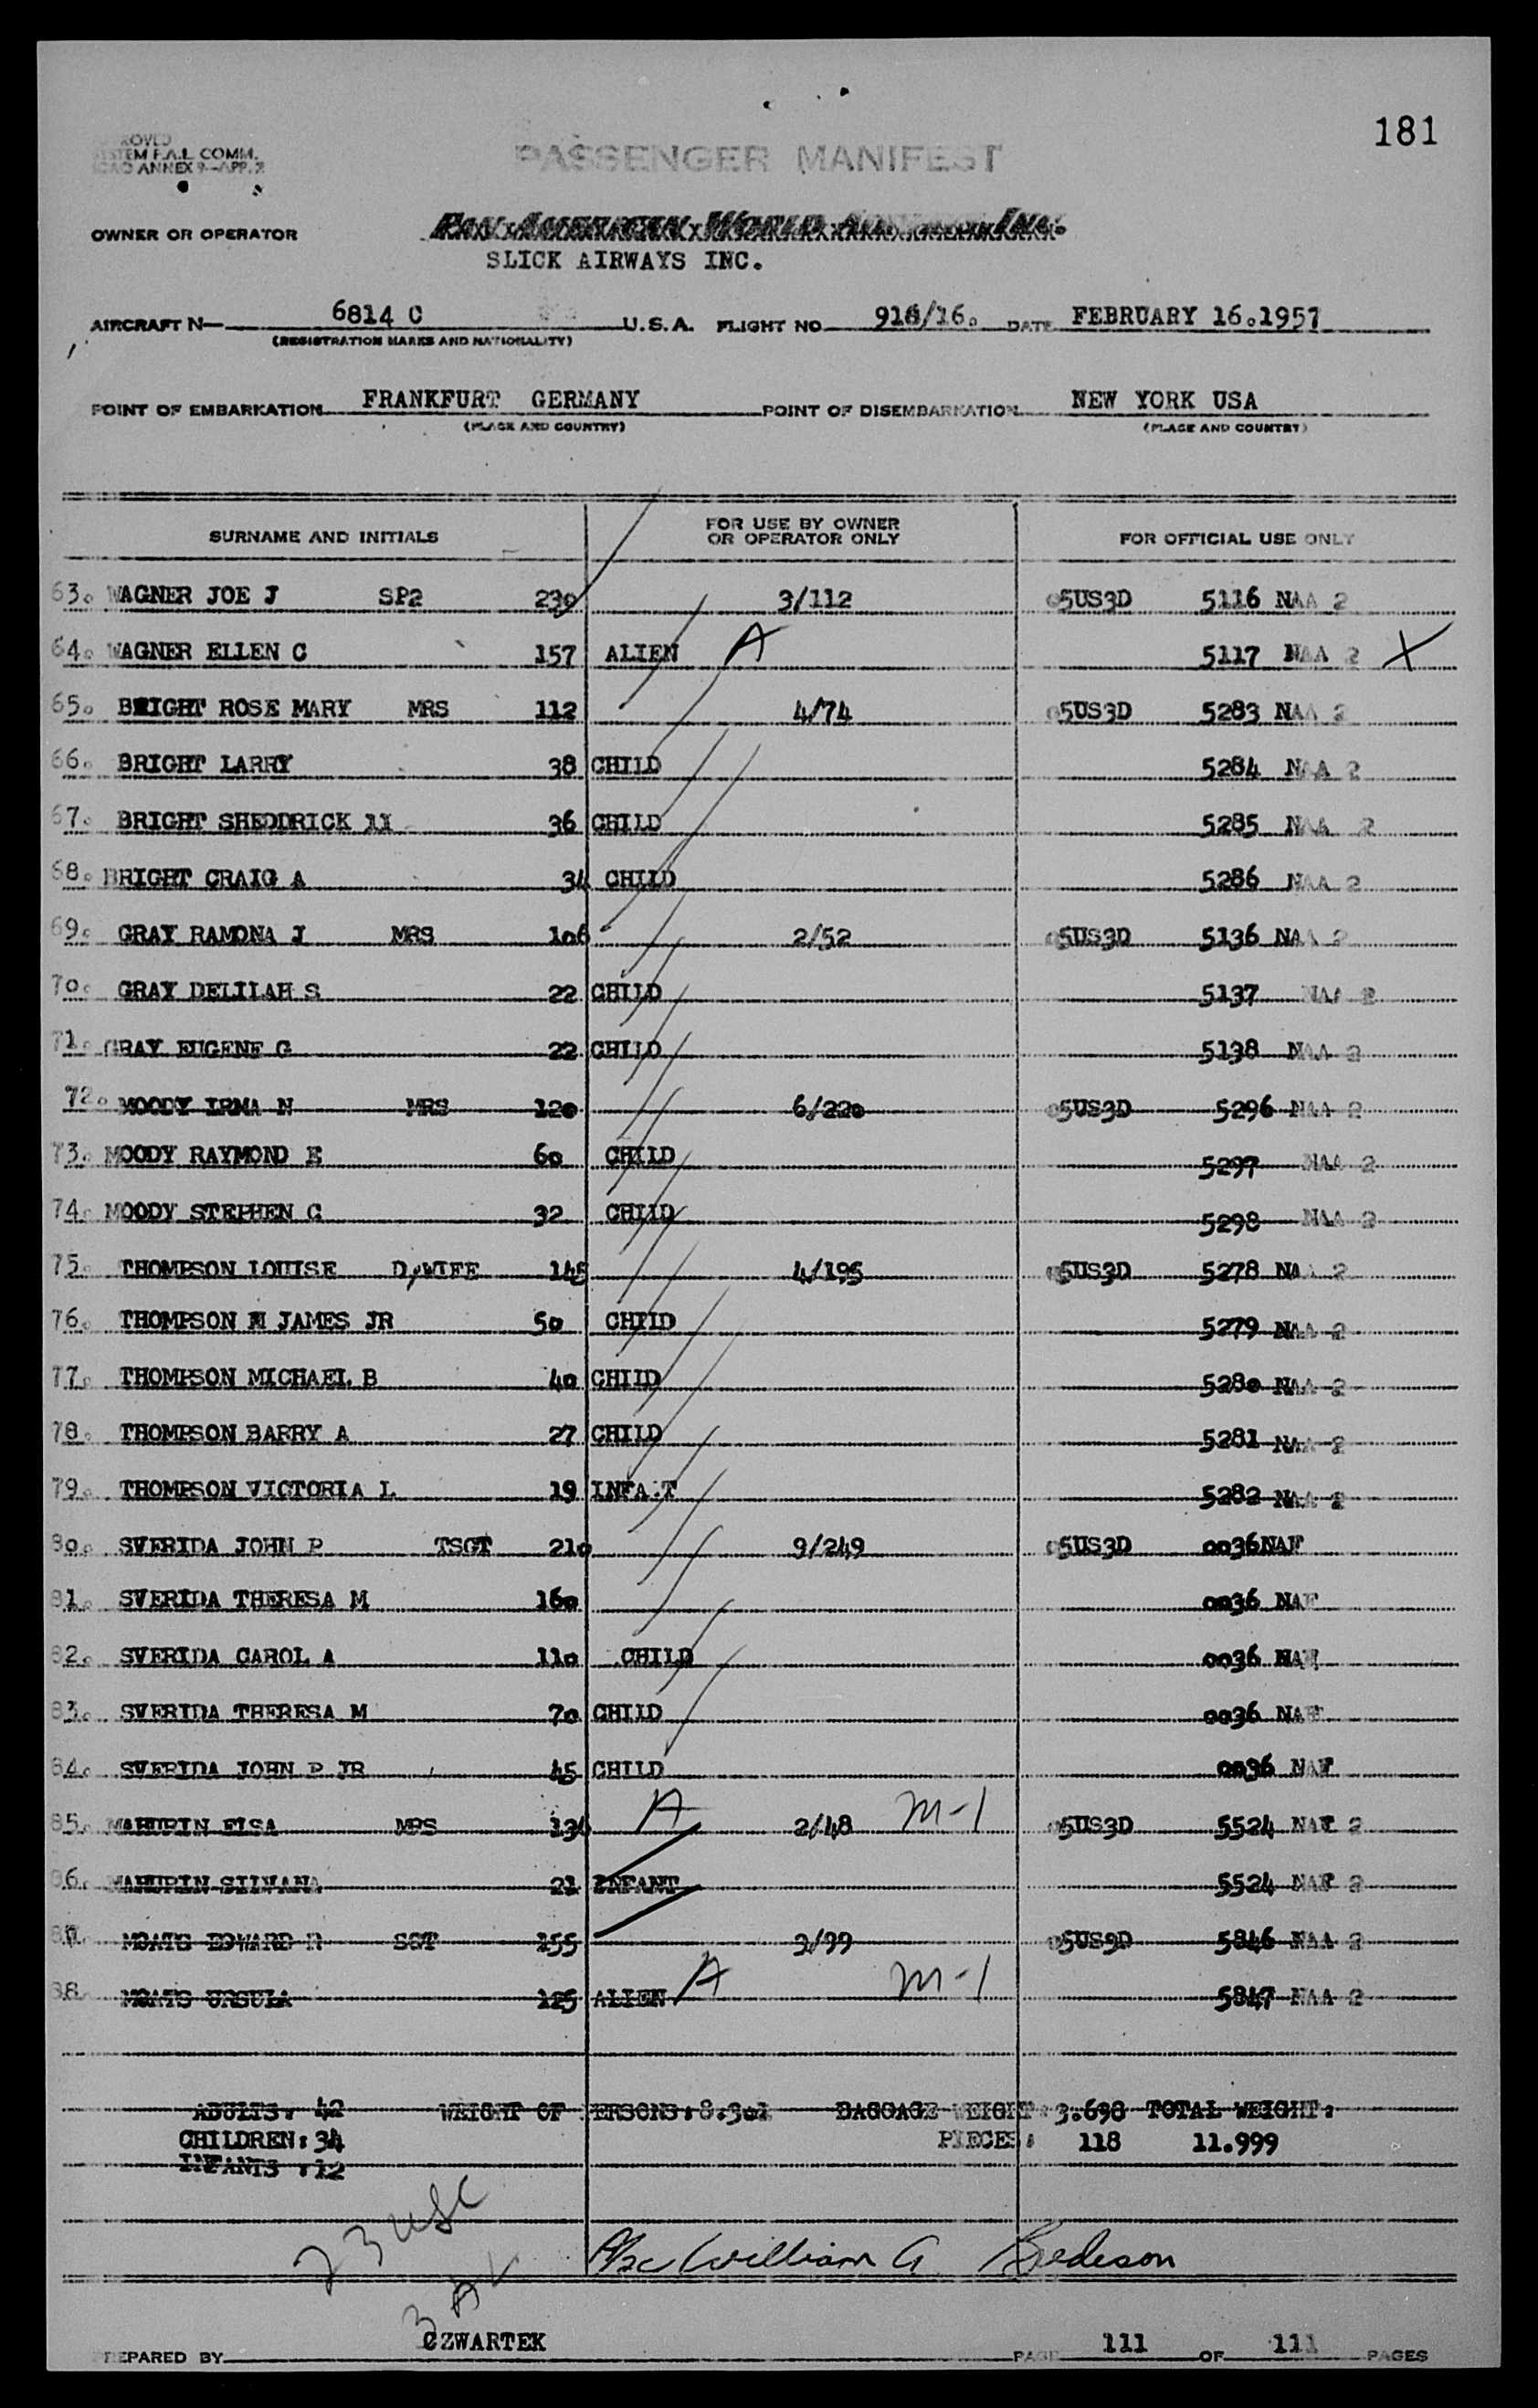 181
STEM F.A.L. COMM.
ANNEX 9-APP. 2
PASSENGER MANIFEST
OWNER OR OPERATOR PAN AMERICAN WORLD INC.
SLICK AIRWAYS INC.
AIRCRAFT N— 6814 C U.S.A. FLIGHT NO. 916/16. DATE FEBRUARY 16.1957
(REGISTRATION MARKS AND NATIONALITY)
POINT OF EMBARKATION FRANKFURT GERMANY POINT OF DISEMBARKATION NEW YORK USA
(PLACE AND COUNTRY) (PLACE AND COUNTRY)
SURNAME AND INITIALS FOR USE BY OWNER OR OPERATOR ONLY FOR OFFICIAL USE ONLY
63. WAGNER JOE J SP2 230 3/112 05US3D 5116 NAA 2
64. WAGNER ELLEN C 157 ALIEN A 5117 NAA 2 X
65. BRIGHT ROSE MARY MRS 112 4/74 05US3D 5283 NAA 2
66. BRIGHT LARRY 38 CHILD 5284 NAA 2
67. BRIGHT SHEDDRICK 11 36 CHILD 5285 NAA 2
68. BRIGHT CRAIG A 34 CHILD 5286 NAA 2
69. GRAY RAMONA J MRS 106 2/52 05US3D 5136 NAA 2
70. GRAY DELILAH S 22 CHILD 5137 NAA 2
71. GRAY EUGENE G 22 CHILD 5138 NAA 2
72. MOODY IRMA N MRS 120 6/220 05US3D 5296 NAA 2
73. MOODY RAYMOND E 60 CHILD 5297 NAA 2
74. MOODY STEPHEN C 32 CHILD 5298 NAA 2
75. THOMPSON LOUISE D/WIFE 145 4/195 05US3D 5278 NAA 2
76. THOMPSON M JAMES JR 50 CHILD 5279 NAA 2
77. THOMPSON MICHAEL B 40 CHILD 5280 NAA 2
78. THOMPSON BARRY A 27 CHILD 5281 NAA 2
79. THOMPSON VICTORIA L 19 INFANT 5282 NAA 2
80. SVERIDA JOHN P TSGT 210 9/249 05US3D 0036NAF
81. SVERIDA THERESA M 160 0036 NAF
82. SVERIDA CAROL A 110 CHILD 0036 NAF
83. SVERIDA THERESA M 70 CHILD 0036 NAF
84. SVERIDA JOHN P JR 45 CHILD 0036 NAF
85. MAHURIN ELSA MRS 134 A 2/48 M-1 05US3D 5524 NAF 2
86. MAHURIN SILVANA 21 INFANT 5524 NAF 2
87. MOATS EDWARD R SGT 155 3/99 05US3D 5846 NAA 2
88. MOATS URSULA 125 ALIEN A M-1 5847 NAA 2
ADULTS: 42 WEIGHT OF PERSONS: 8.301 BAGGAGE WEIGHT: 3.698 TOTAL WEIGHT:
CHILDREN: 34 PIECES: 118 11.999
INFANTS : 12
23 USC
A/3c William G. Bedeson
3 A
CZWARTEK
PREPARED BY PAGE 111 OF 111 PAGES